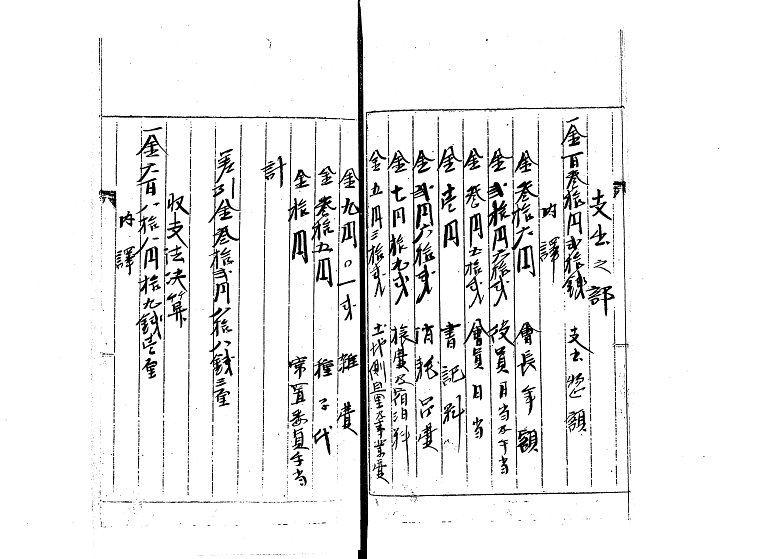 支出之部
一金百叁拾円弐拾銭 支出総額
内譯
金叁拾六円 會長年額
金弐拾円六拾弐 役員日当及手当
金叁円五拾弐 會員日当
金壱円 書記料
金弐円八拾弐 消耗品費
金七円拾九弐 旅費及宿泊料
金五円三拾弐 土地測量及事業費
金九円〇一弐 雑費
金叁拾五円 種子代
金拾円 常置委員手当
計
差引金叁拾弐円八拾八銭三厘
収支決算
一金六百八拾八円拾九銭壱厘
内譯